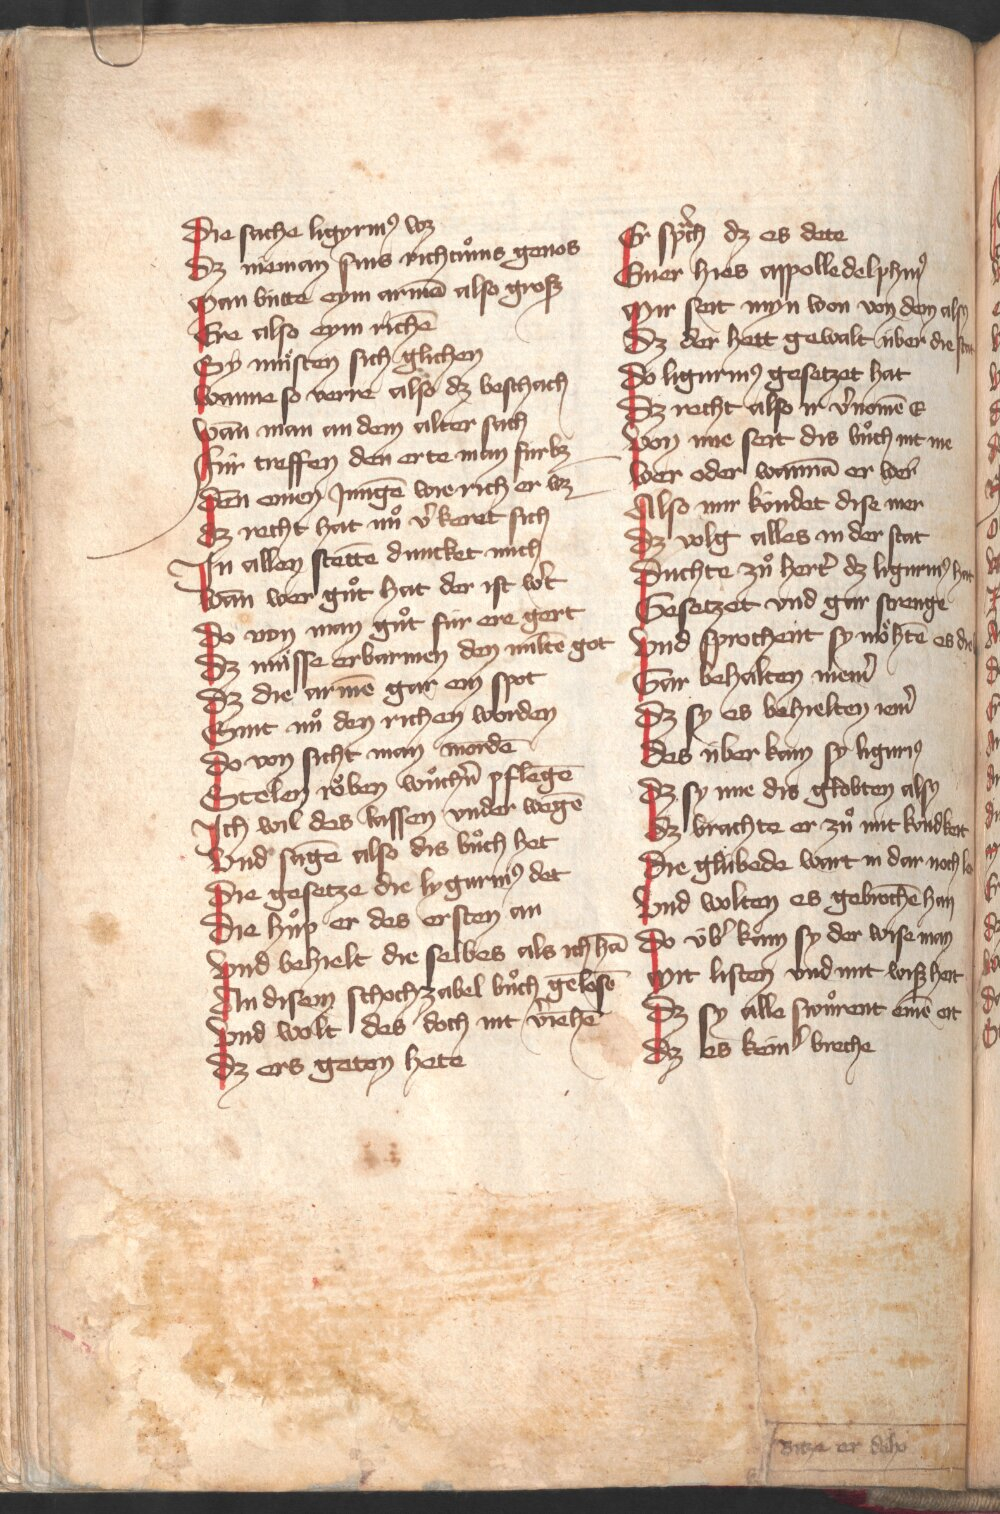 Die sache ligyrnꝰ wz
Dz nieman sins richtuͦms genos
Man butte eym armē also groß
Ere also eym richē
Sy muͤsten sich glichen
Wanne so verre also dz beschach
Wān man an dem alter sach
Für treffen den erte man fürbz
Den einen Jungē wie rich er wz
Dz recht hat nuͦ v̓keret sich
In allen stettē duncket mich
Wān wer guͦt hat der ist w̓t
Do von man guͦt für ere gert
Dz muͤsse erbarmen den miltē got
Dz die armē gar ein spot
Sint nuͦ den richen worden
Do von sicht man mordē
Stelen roͧben wuͦchn̓ pflegē
Ich wil des lassen under wegē
Vnd sagē also dis buͦch het
Die gesetze die lygurnꝰ det
Die huͦp er des ersten an
Vnd behielt die selbes als ich hā
An disem schochzabel buͦch gelesē
Vnd wolt des doch nit v̓iehē
Dz ers geton hete
Er sprͣch dz es dete
Einer hies appolledelphinꝰ
Mir seit myn won von dem alsꝰ
Dz der hett gewalt über die stat
Do ligurnꝰ gesetzet hat
Dz recht also ir v̓nomē E
Von ime seit dis buͦch nit me
Wer oder wannā er wer
Also mir kündet dise mer
Dz volg alles in der stat
Duchte zuͦ hert̓ dz ligurnꝰ hat
Gesetzet vnd gar strenge
Vnd sprochent sy moͤhtē es die
Gar behalten niem̓
Dz sy es behielten iem̓
Des über kam sy ligurꝰ
Dz sy ime dis globten alsꝰ
Dz brachte er zuͦ mit kondkeit
Die glübede wart in dar noch
Vnd wolten es gebrochē han
Do üb̓ kam sy der wise man
Mit listen vnd mit wißheit
Dz sy alle swuͦrent einē eit
Dz es keinꝰ breche
er